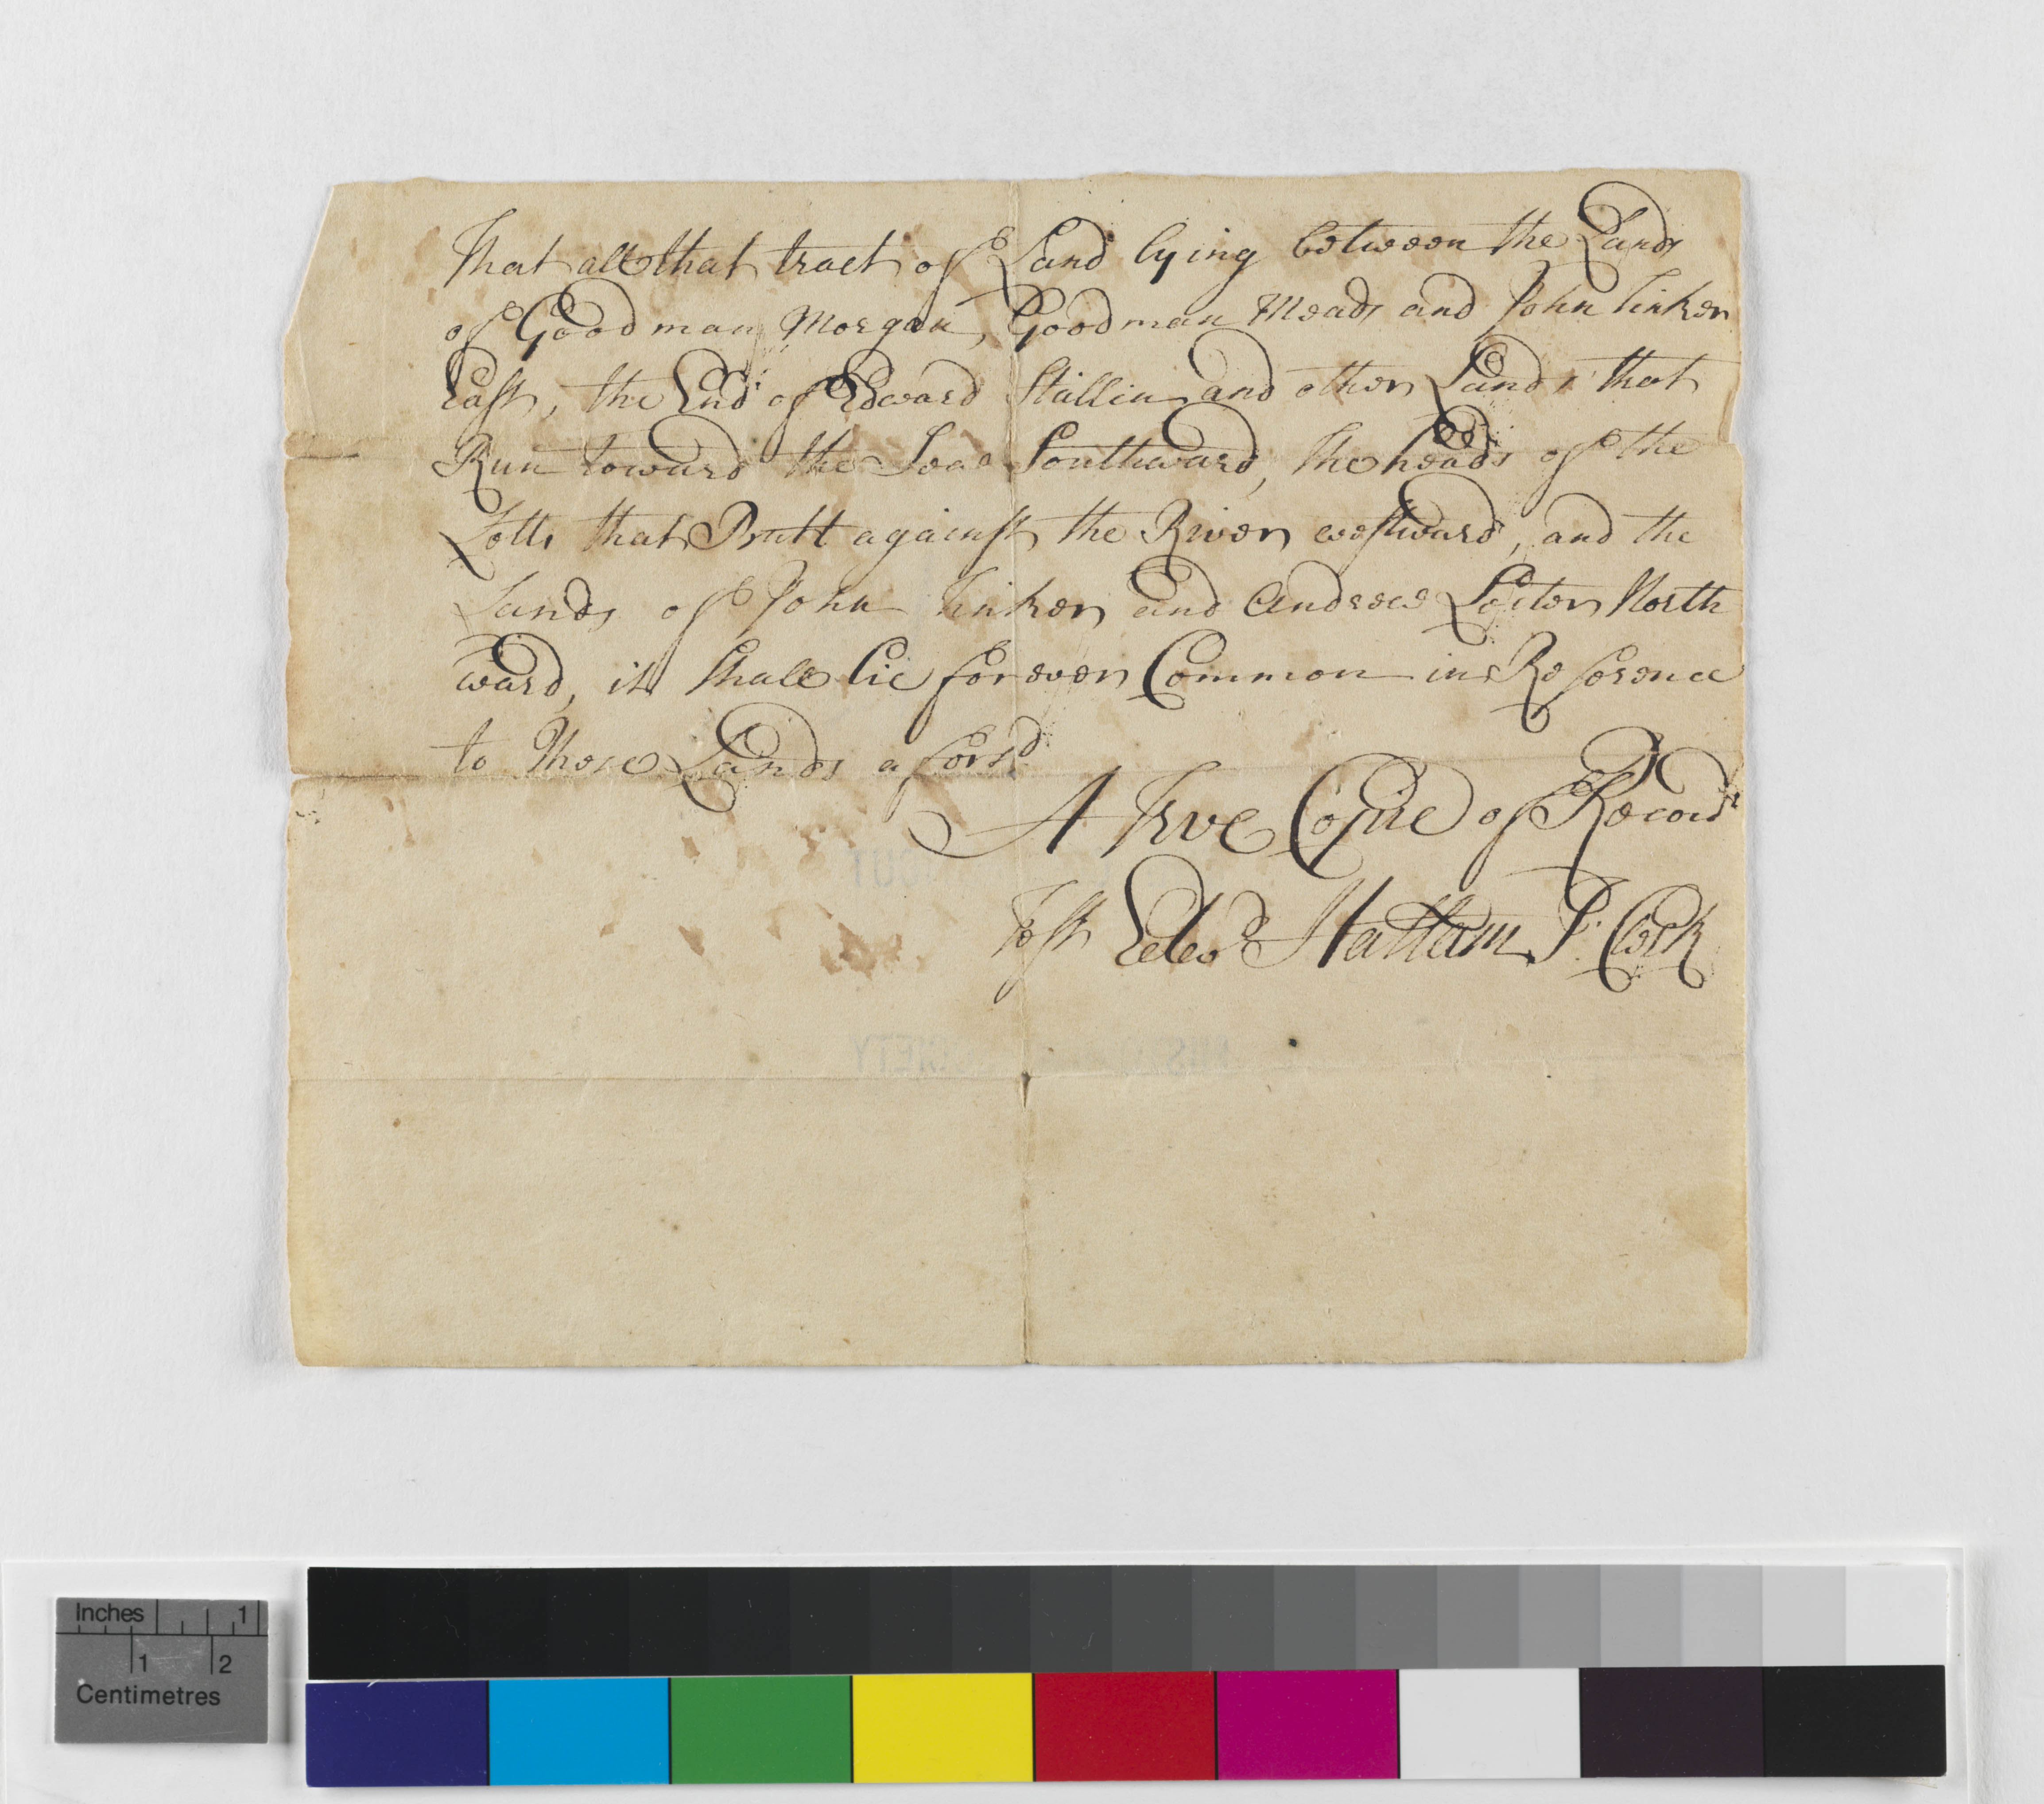 That all that tract of Land lying between the Lands
of Goodman Morgan, Goodman Meads and John Tinker
East, the Ends of Edward Stallin and other Lands that
Run toward the Seae Southward, the heads of the
Lotts that Butt against the River westward, and the
Lands of John Tinker and Andrew Lester North
ward, it shall lie forever Common in Reference
to those Lands aforsd
A True Copie of Record
Test Edwd Hallam T: Clerk
Inches 1
1 2
Centimetres